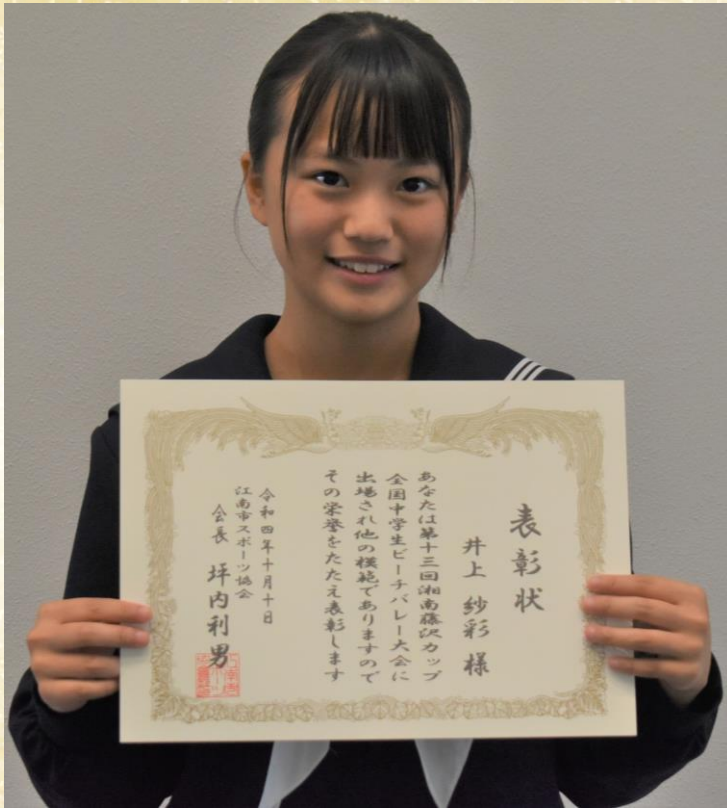 表彰状
井上 紗彩 様
あなたは第十三回湘南藤沢カップ
全国中学生ビーチバレー大会に
出場され他の模範でありますので
その栄誉をたたえ表彰します
令和四年十月十日
江南市スポーツ協会
会長 坪内利男